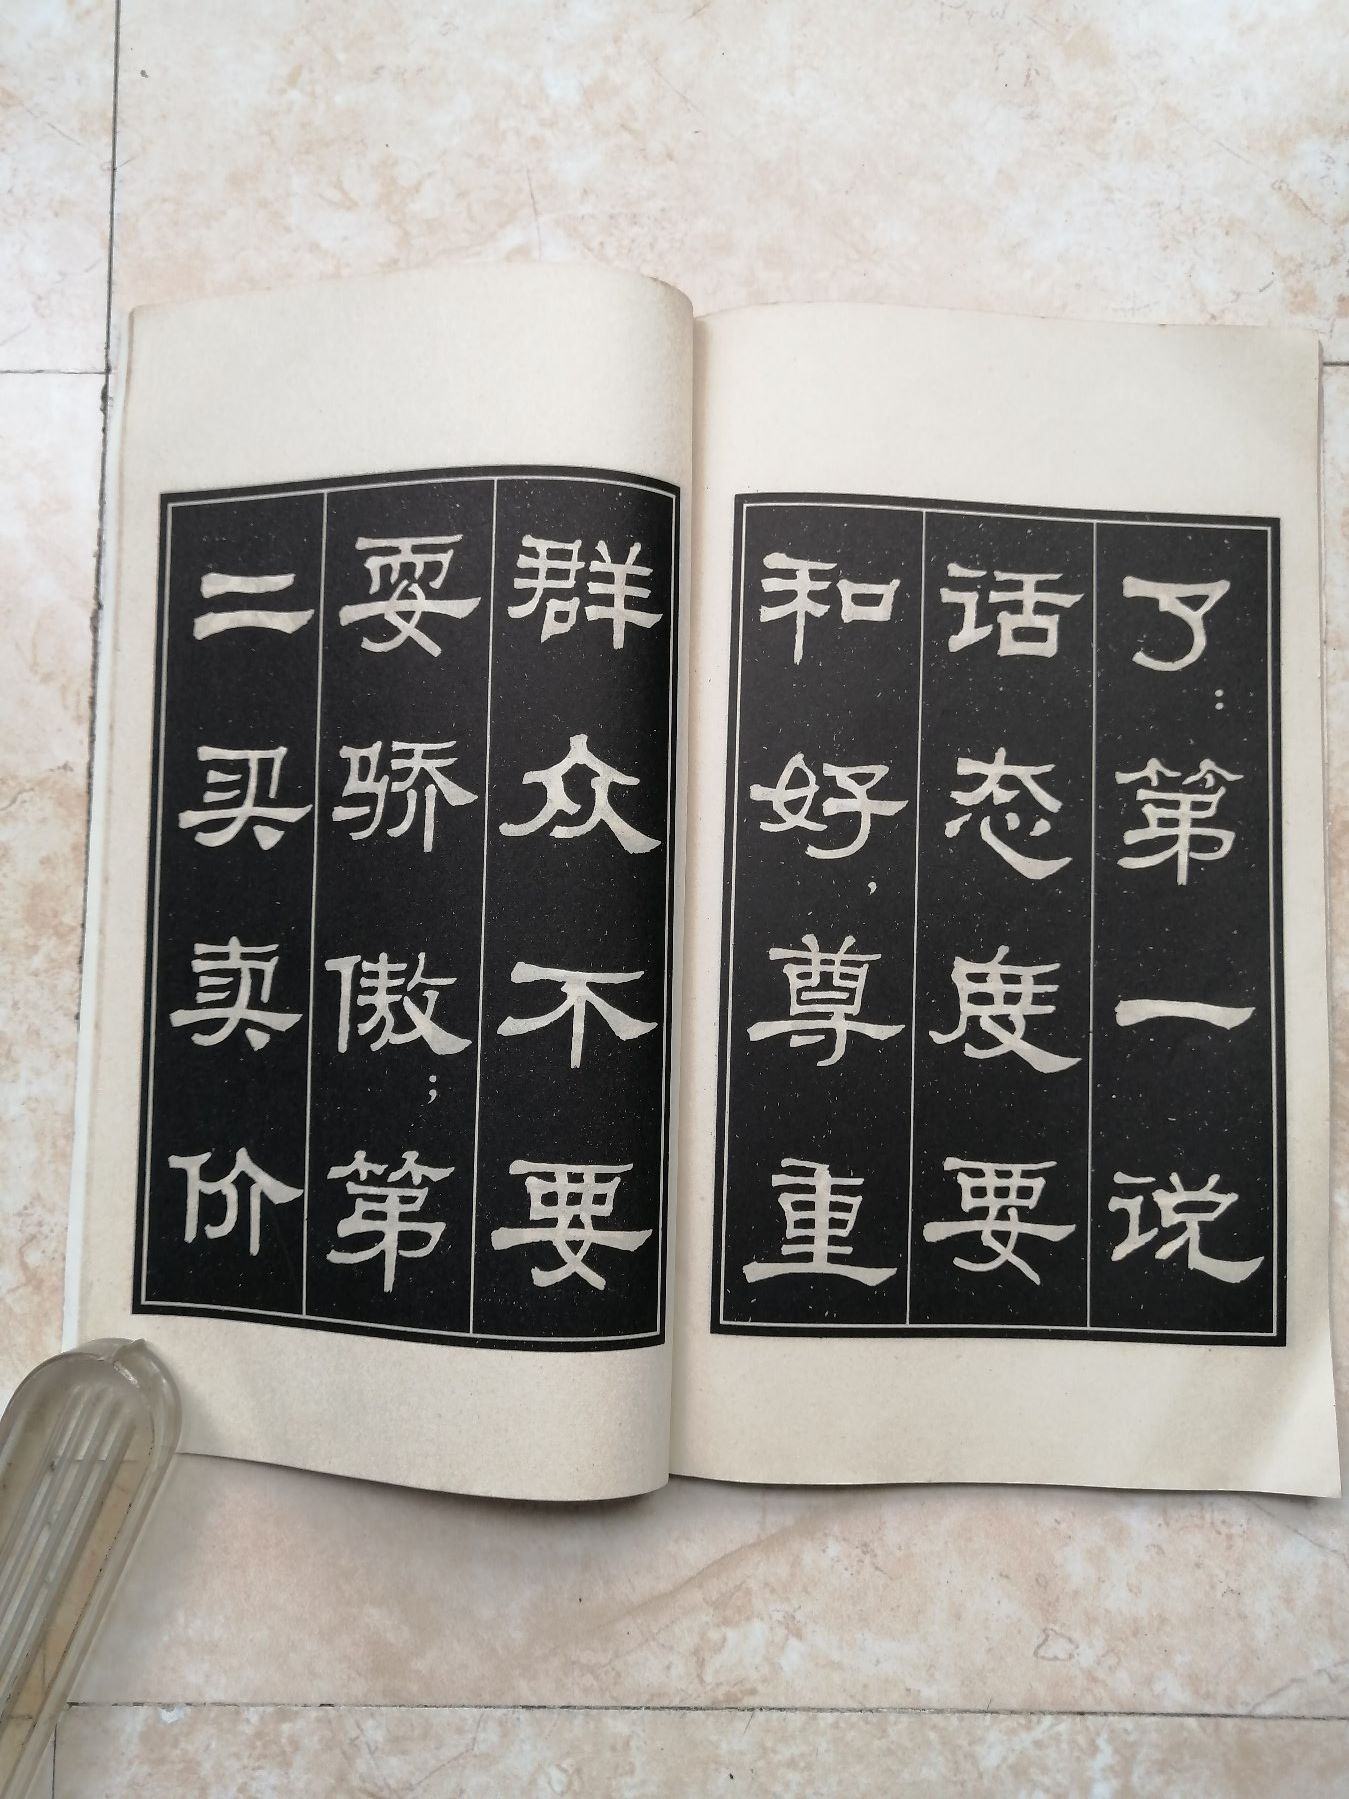 了：第一说
话态度要
和好，尊重
群众不要
耍骄傲；第
二买卖价